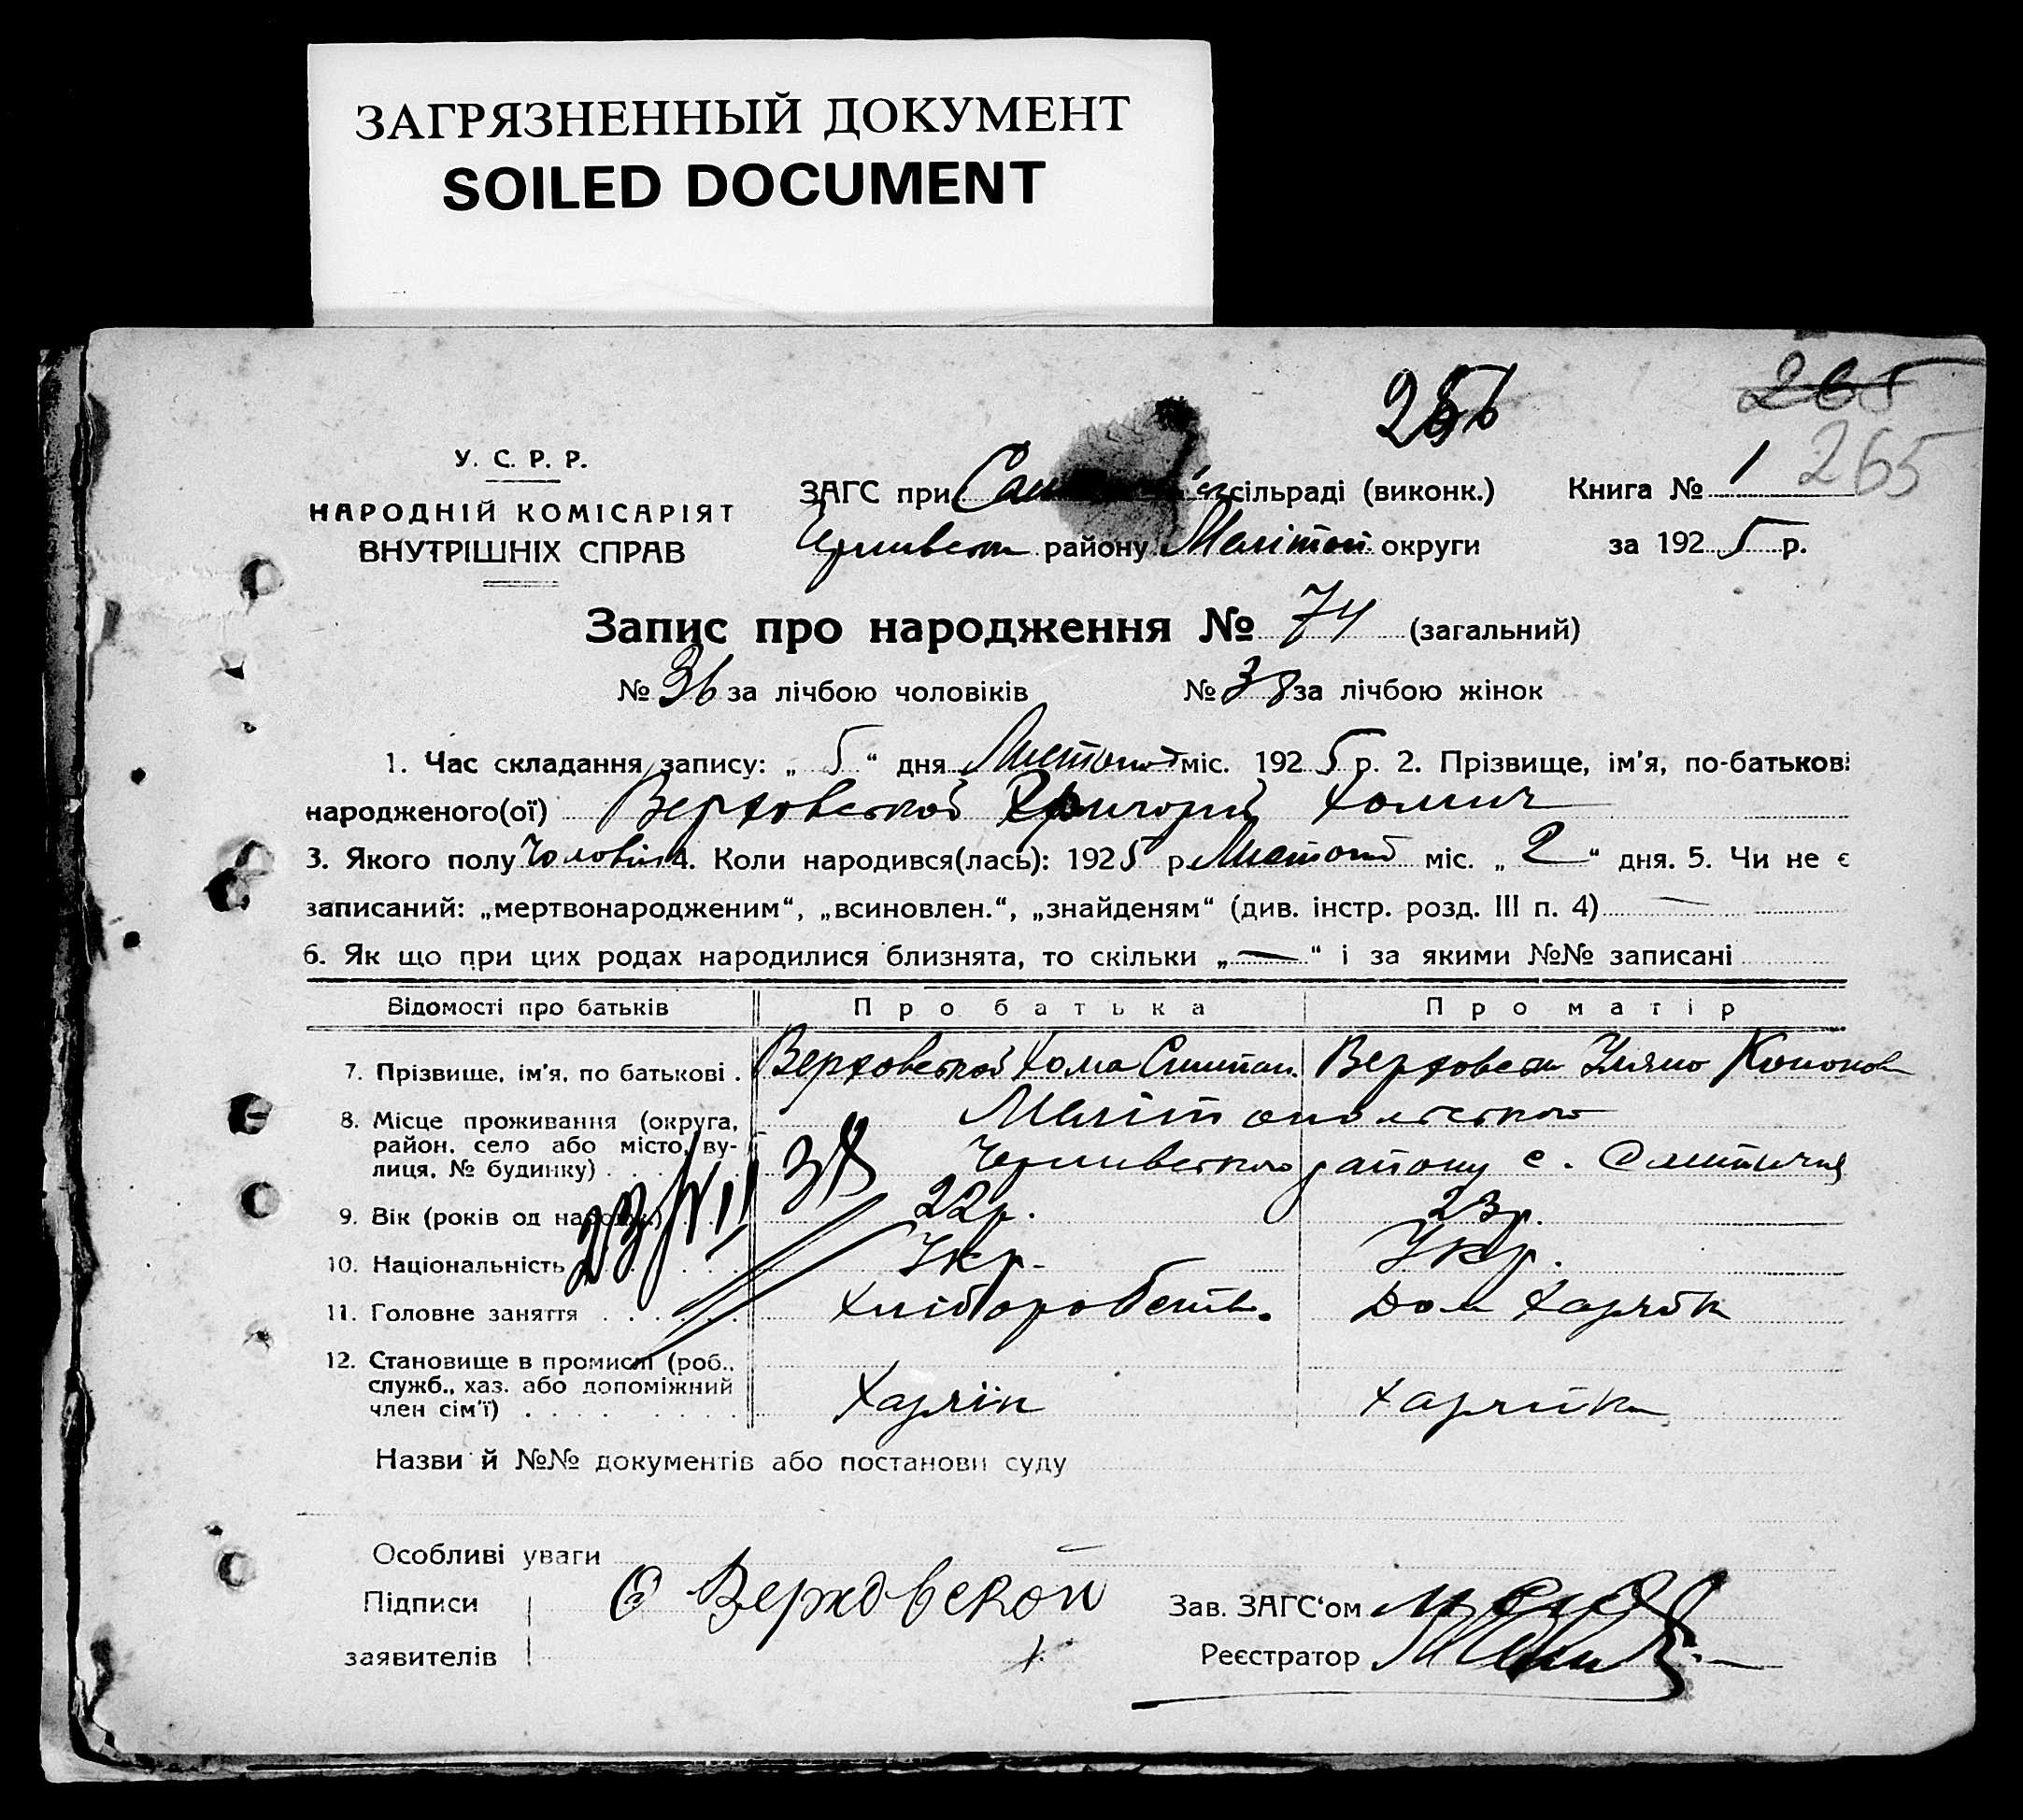 ЗАГРЯЗНЕННЫЙ ДОКУМЕНТ
SOILED DOCUMENT
265
265
У. С. Р. Р.
НАРОДНІЙ КОМІСАРІЯТ
ВНУТРІШНІХ СПРАВ
ЗАГС при сільраді (виконк.)
району Маліт округи
Книга № 1
за 1925 р.
Запис про народження № 74 (загальний)
№ 36 за лічбою чоловіків № 38 за лічбою жінок
1. Час складання запису: „ 5 “ дня Листопад міс. 1925 р. 2. Прізвище, ім'я, по-батькові
народженого(ої) Верховской Григорий Хомич
3. Якого полу Чоловік 4. Коли народився(лась): 1925 р. Листопад міс. „ 2 “ дня. 5. Чи не є
записаний: „мертвонародженим“, „всиновлен.“, „знайденям“ (див. інстр. розд. III п. 4) —
6. Як що при цих родах народилися близнята, то скільки „ — “ і за якими №№ записані
Відомості про батьків Про батька Про матір
7. Прізвище, ім'я, по батькові . Верховской Хома Верховськ Уляна Конон
8. Місце проживання (округа,
район, село або місто, ву-
лиця, № будинку) . . .
Малітопольского
району с.
9. Вік (років од народж.) 22 р. 23 р.
10. Національність Укр. Укр.
11. Головне заняття . . . . . . Хліборобств. Дом Хазяйк
12. Становище в промислі (роб.,
служб., хаз. або допоміжний
член сім'ї) . . . . . . Хазяін Хазяйка
Назви й №№ документів або постанови суду
Особливі уваги
Підписи
заявителів
Верховской
Зав. ЗАГС'ом
Реєстратор